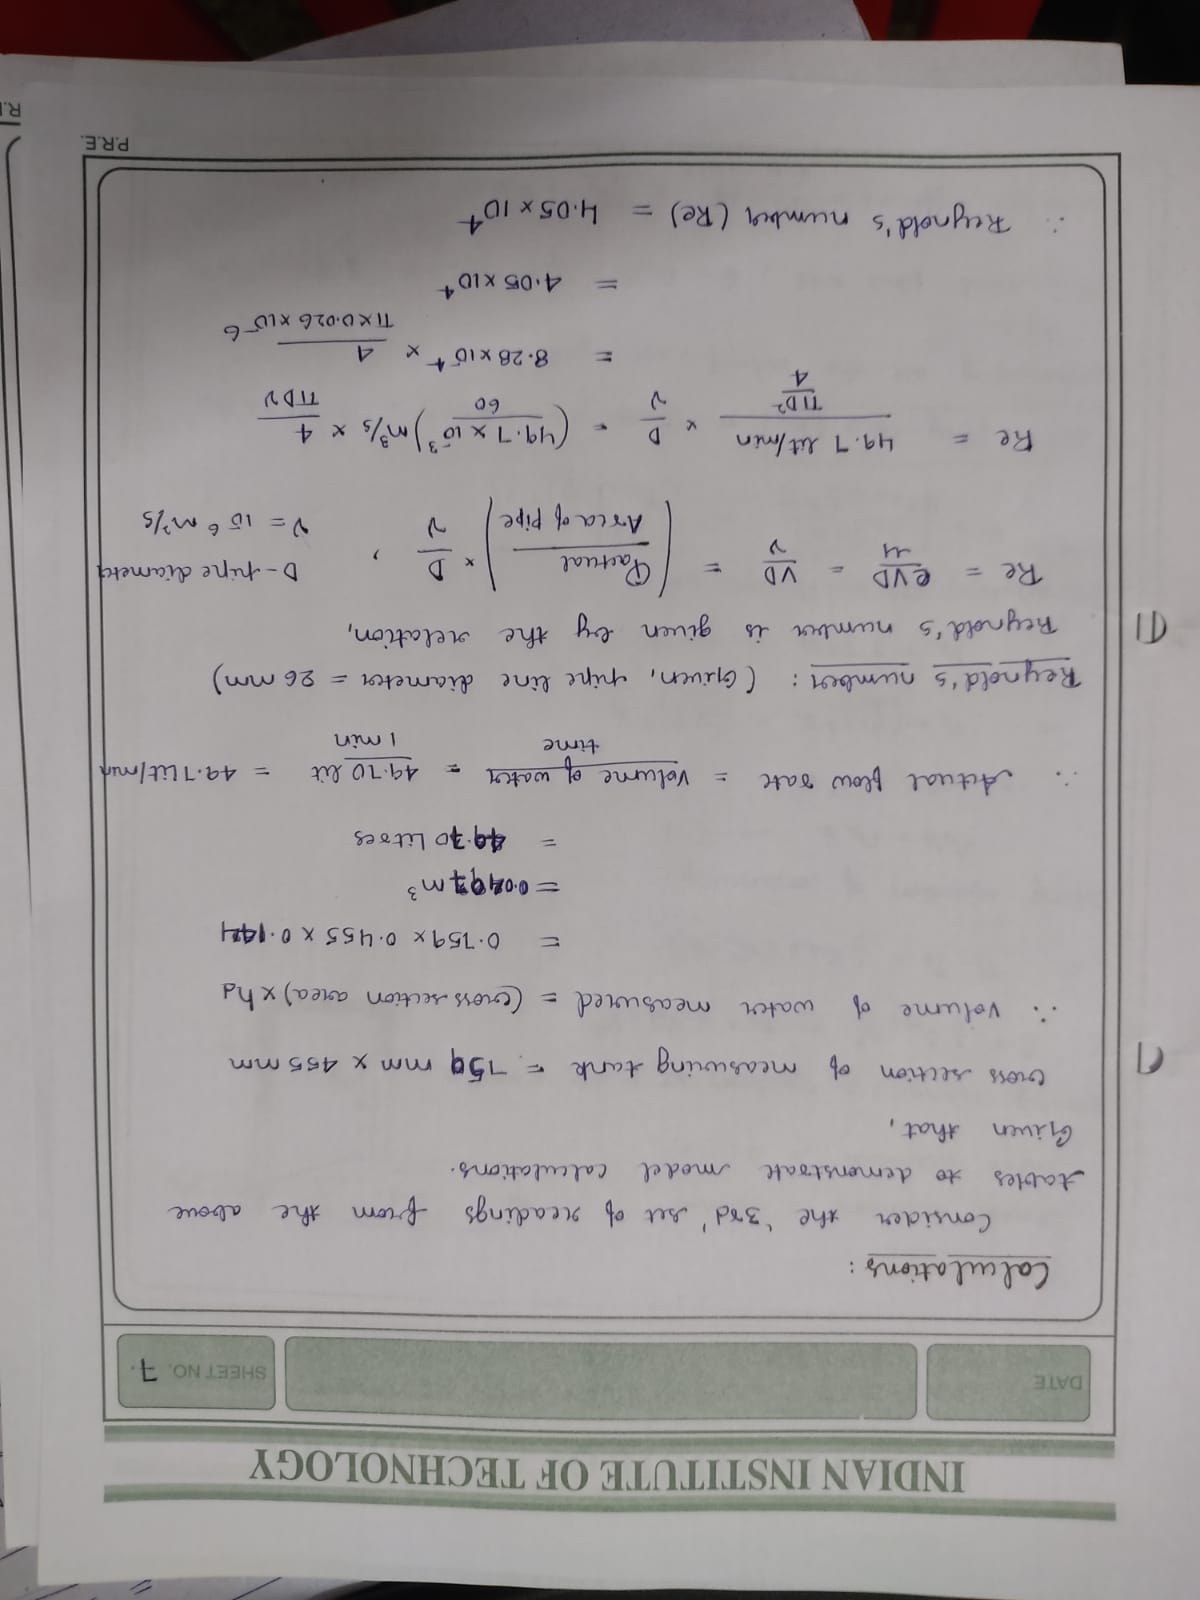 INDIAN INSTITUTE OF TECHNOLOGY
DATE
SHEET NO. 7.
Calculations:
Consider the '3rd' set of readings from the above
tables to demonstrate model calculations.
Given that,
cross section of measuring tank = 759 mm x 455 mm
∴ Volume of water measured = (cross section area) x hd
= 0.759 x 0.455 x 0.144
= 0.0497 m³
= 49.70 Litres
∴ Actual flow rate = Volume of water / time = 49.70 lit / 1 min = 49.7 Lit/min
Reynold's number: (Given, pipe line diameter = 26 mm)
Reynold's number is given by the relation,
Re = ρVD/μ = VD/ν = (Qactual / Area of pipe) x D/ν , D - pipe diameter
ν = 10⁻⁶ m²/s
Re = 49.7 lit/min / (πD²/4) x D/ν = (49.7 x 10⁻³ / 60) m³/s x 4/πDν
= 8.28 x 10⁻⁴ x 4 / π x 0.026 x 10⁻⁶
= 4.05 x 10⁴
∴ Reynold's number (Re) = 4.05 x 10⁴
P.R.E.